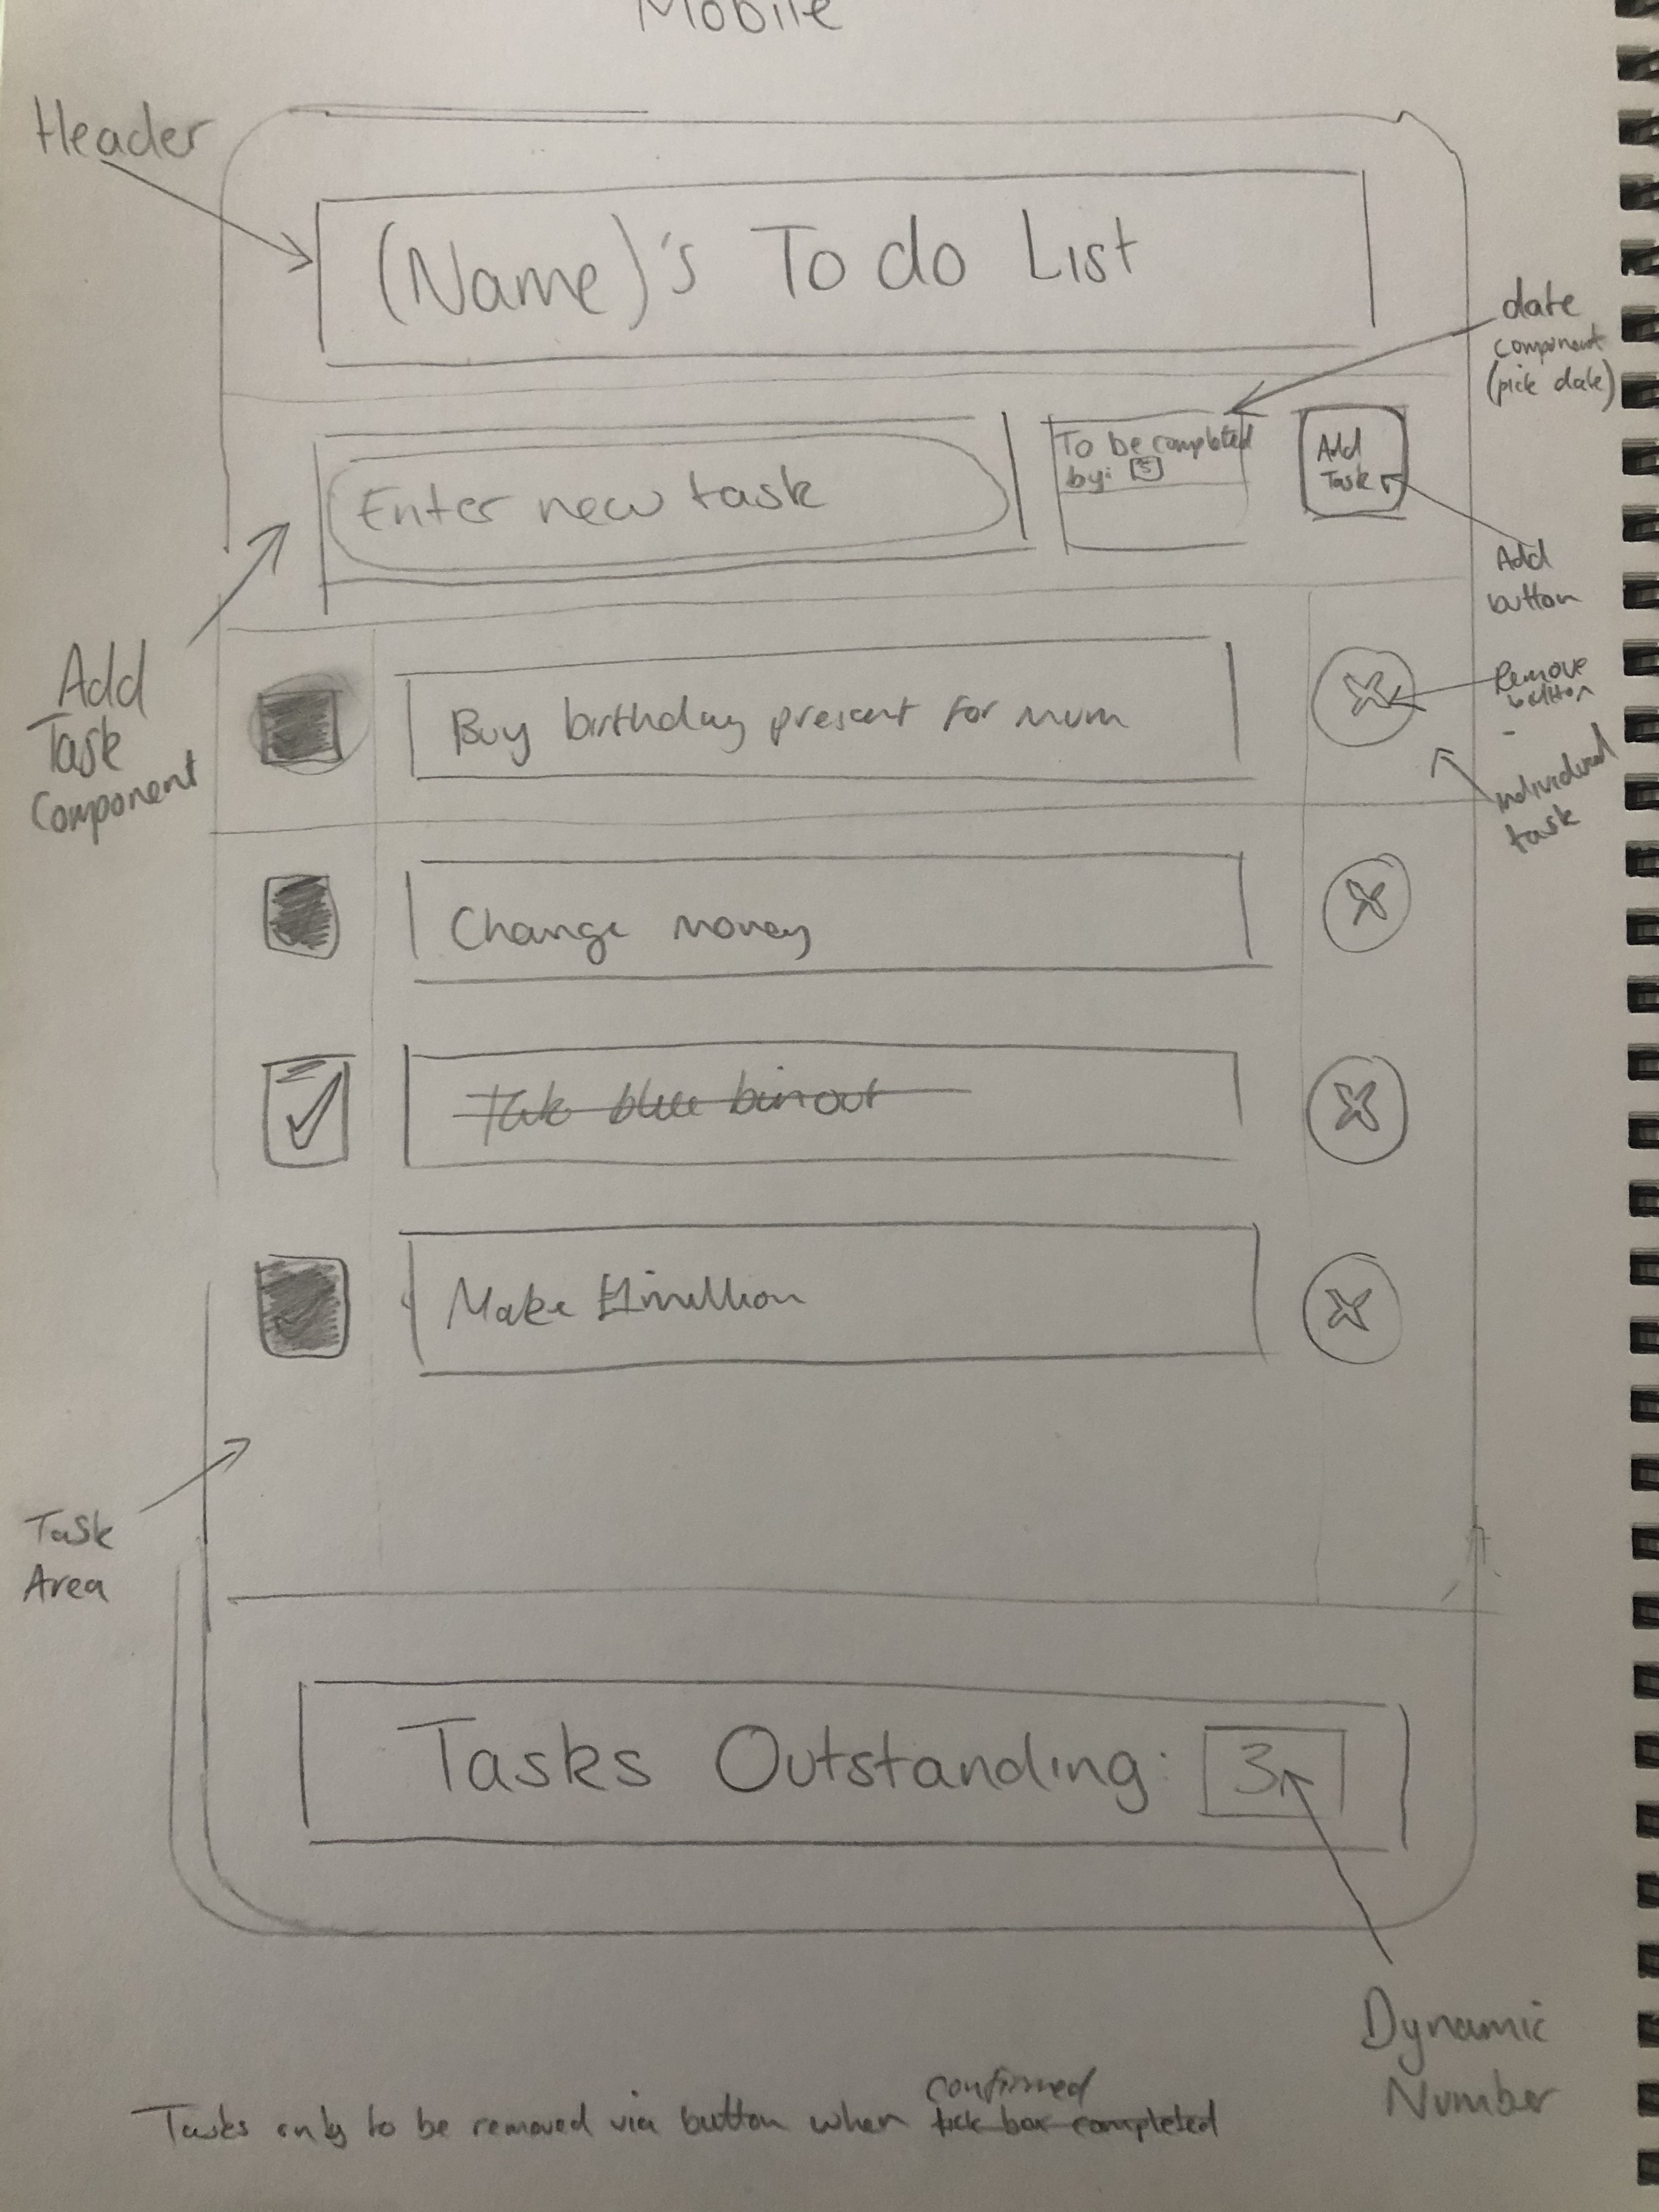 Mobile
Header
(Name)'s To do List
date
component
(pick date)
To be completed
by: 5
Add
Task
Enter new task
Add
button
Add
Task
Component
Buy birthday present for mum
Remove
button
individual
task
Change money
Take blue bin out
Make £1million
Task
Area
Tasks Outstanding: 3
Dynamic
Number
confirmed
Tasks only to be removed via button when tick box completed